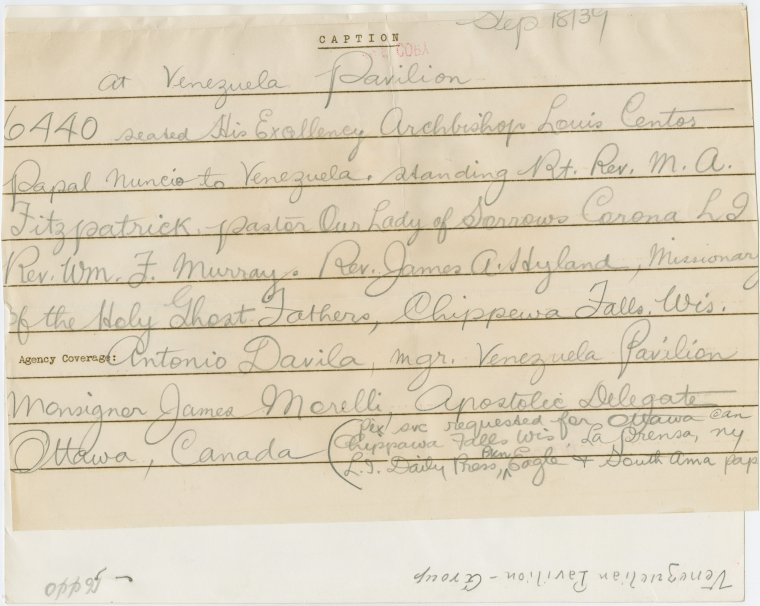 Sep 18/39
CAPTION
COPY
at Venezuela Pavilion
6440 seated His Excellency Archbishop Louis Centos
Papal Nuncio to Venezuela. standing Rt. Rev. M. A.
Fitzpatrick, pastor Our Lady of Sorrows Corona L I
Rev. Wm. F. Murray. Rev. James A. Hyland, Missionary
of the Holy Ghost Fathers, Chippewa Falls. Wis.
Agency Coverage: Antonio Davila, mgr. Venezuela Pavilion
Monsignor James Morelli, Apostolic Delegate
Ottawa, Canada
(Pix svc requested for Ottawa Can
Chippawa Falls Wis, La Prensa, ny
L.I. Daily Press, Bkn Eagle & South Ama pap
Venezuelian Pavilion - Group